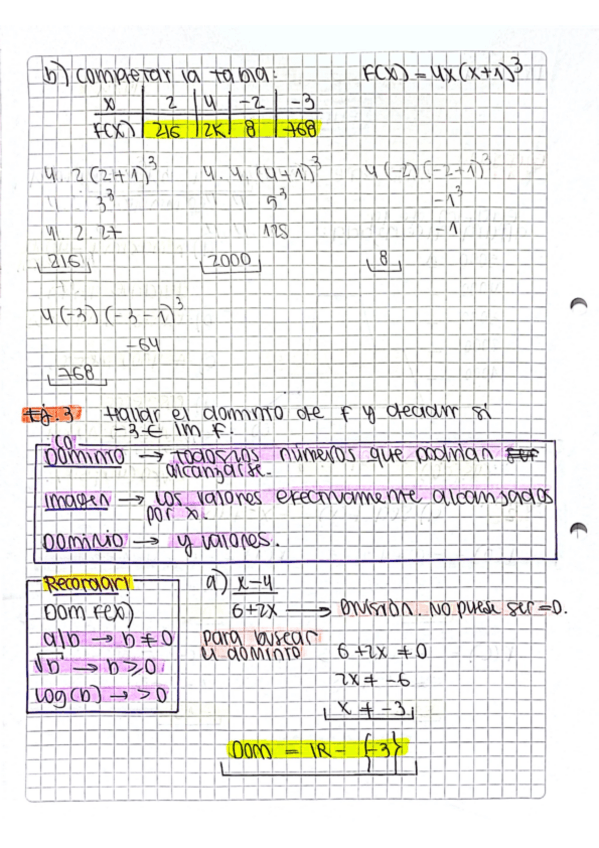 b) completar la tabla: F(x) = 4x(x+1)³
x | 2 | 4 | -2 | -3
F(x) | 216 | 2K | 8 | 768
4. 2(2+1)³ 4. 4. (4+1)³ 4(-2)(-2+1)³
3³ 5³ -1³
4. 2. 27 125 -1
216 2000 8
4(-3)(-3-1)³
-64
768
Ej. 3 Hallar el dominio de f y decidir si
-3 ∈ Im f.
co
Dominio → todos los números que podrían
alcanzarse.
Imagen → Los valores efectivamente alcanzados
por x.
Dominio → y valores.
Recordar!
Dom F(x)
a/b → b ≠ 0
√b → b ≥ 0
log(b) → > 0
a) x-4
6+2x → División. No puede ser = 0.
para buscar
el dominio
6+2x ≠ 0
2x ≠ -6
x ≠ -3
Dom = IR - {-3}